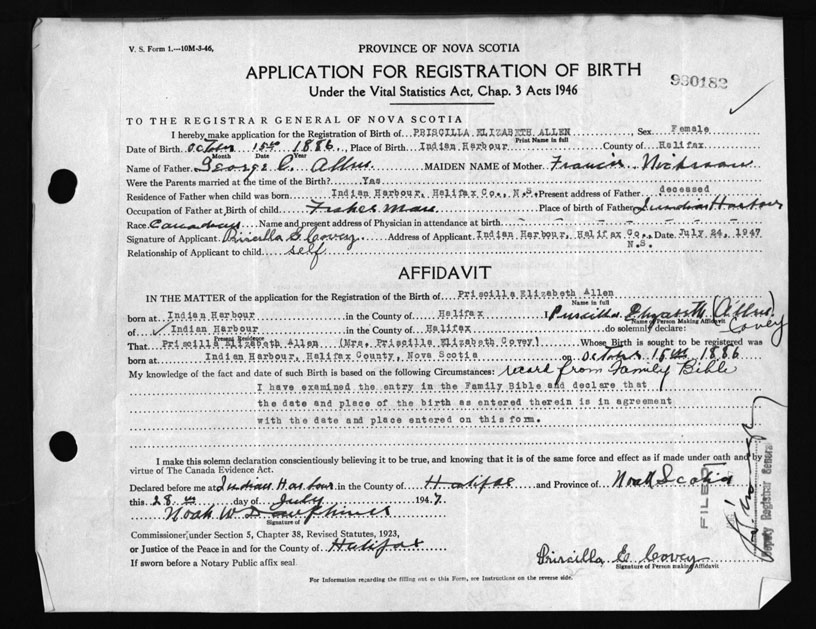 V. S. Form 1.—10M-3-46,
PROVINCE OF NOVA SCOTIA
APPLICATION FOR REGISTRATION OF BIRTH
Under the Vital Statistics Act, Chap. 3 Acts 1946
990182
TO THE REGISTRAR GENERAL OF NOVA SCOTIA
I hereby make application for the Registration of Birth of PRISCILLA ELIZABETH ALLEN, Sex Female
Print Name in full
Date of Birth October 15th 1886, Place of Birth Indian Harbour County of Halifax
Month Date Year
Name of Father George C. Allen MAIDEN NAME of Mother Francis Nickerson
Were the Parents married at the time of the Birth? Yes
Residence of Father when child was born Indian Harbour, Halifax Co., N.S. Present address of Father deceased
Occupation of Father at Birth of child Fisherman Place of birth of Father Indian Harbour
Race Canadian Name and present address of Physician in attendance at birth
Signature of Applicant Priscilla E. Covey Address of Applicant Indian Harbour, Halifax Co., N.S. Date July 24, 1947
Relationship of Applicant to child self
AFFIDAVIT
IN THE MATTER of the application for the Registration of the Birth of Priscilla Elizabeth Allen
Name in full
born at Indian Harbour in the County of Halifax I Priscilla Elizabeth (Allen) Covey
Name of Person Making Affidavit
of Indian Harbour in the County of Halifax do solemnly declare:
Present Residence
That Priscilla Elizabeth Allen (Mrs. Priscilla Elizabeth Covey) Whose Birth is sought to be registered was
born at Indian Harbour, Halifax County, Nova Scotia on October 15th 1886
My knowledge of the fact and date of such Birth is based on the following Circumstances: record from Family Bible
I have examined the entry in the Family Bible and declare that
the date and place of the birth as entered therein is in agreement
with the date and place entered on this form.
I make this solemn declaration conscientiously believing it to be true, and knowing that it is of the same force and effect as if made under oath and by
virtue of The Canada Evidence Act.
Declared before me at Indian Harbour in the County of Halifax and Province of Nova Scotia
this 28th day of July 1947
Noah W Dauphinee
Signature of
Commissioner, under Section 5, Chapter 38, Revised Statutes, 1923,
or Justice of the Peace in and for the County of Halifax
If sworn before a Notary Public affix seal
Priscilla E Covey
Signature of Person making Affidavit
For Information regarding the filling out os this Form, see Instructions on the reverse side.
FILED
Deputy Registrar General